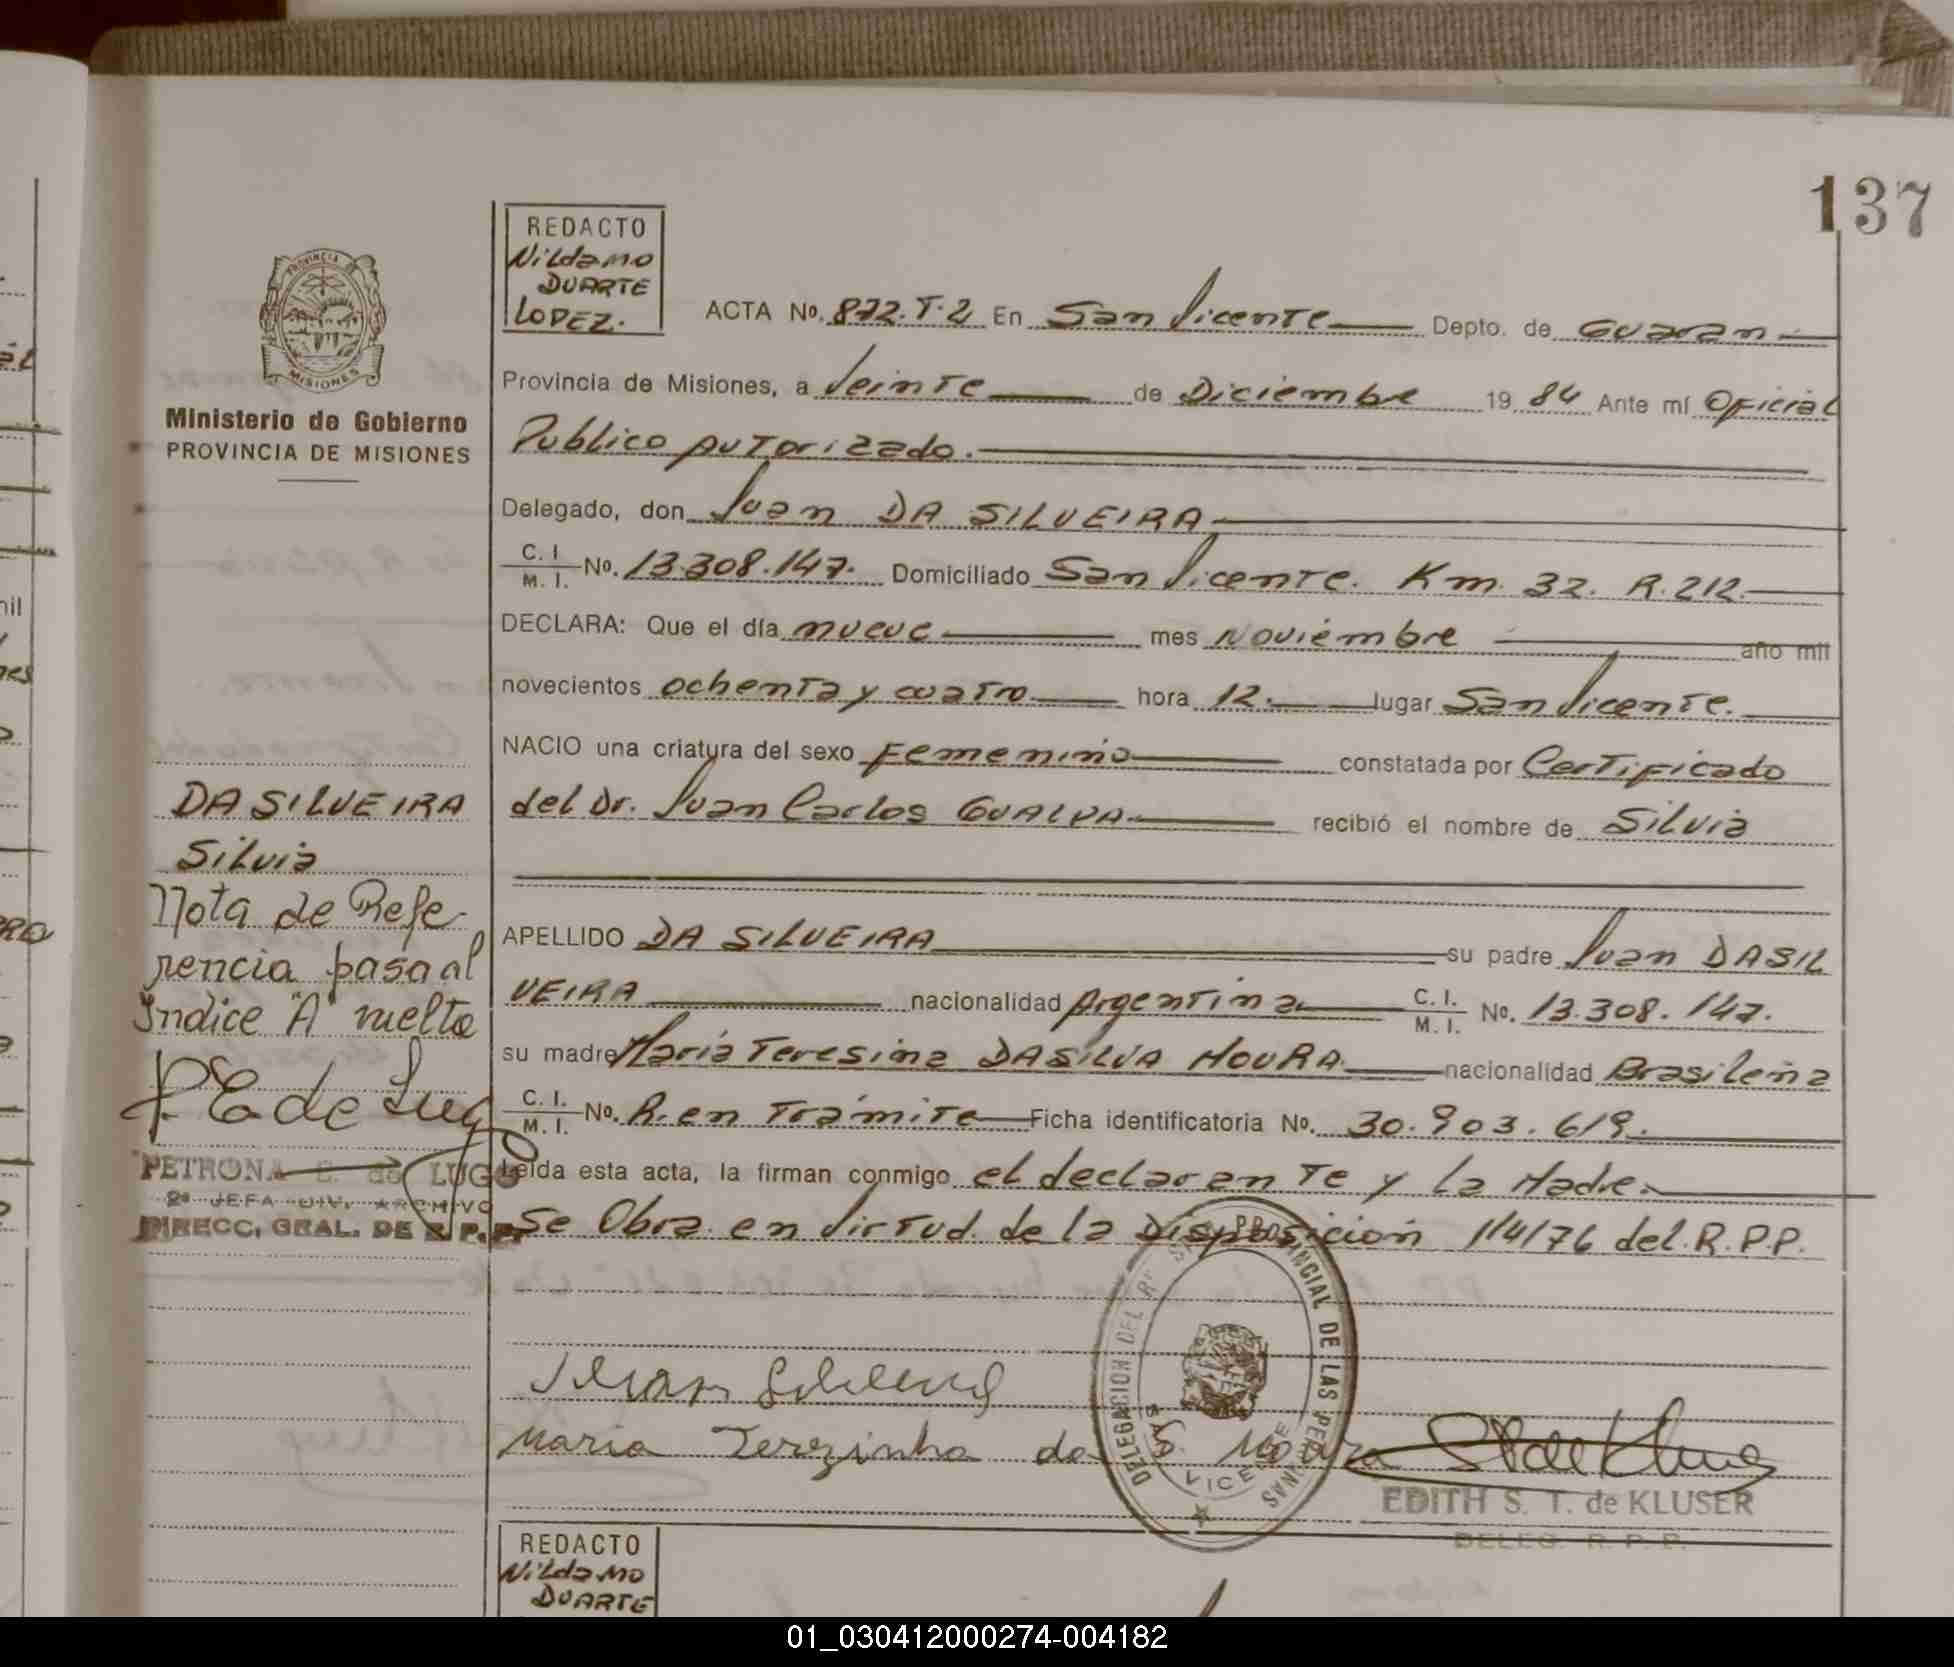 137
REDACTO
Nildamo
DUARTE
LOPEZ.
PROVINCIA DE
MISIONES
Ministerio de Gobierno
PROVINCIA DE MISIONES
ACTA No. 872.T.2 En San Vicente Depto. de Guaran
Provincia de Misiones, a Veinte de Diciembre 19 84 Ante mí Oficial
Publico Autorizado.
Delegado, don Juan DA SILVEIRA
C. I. M. I. No. 13.308.147. Domiciliado San Vicente. Km. 32. R.212.
DECLARA: Que el día nueve mes Noviembre año mil
novecientos ochenta y cuatro hora 12. lugar San Vicente.
NACIO una criatura del sexo Femenino constatada por Certificado
del Dr. Juan Carlos GUALPA recibió el nombre de Silvia
APELLIDO DA SILVEIRA su padre Juan DASIL
VEIRA nacionalidad Argentina C. I. M. I. No. 13.308.147.
su madre María Teresina DASILVA MOURA nacionalidad Brasileña
C. I. M. I. No. R. en Trámite Ficha identificatoria No. 30.903.619.
Leída esta acta, la firman conmigo el declarante y la Madre.
Se Obra en Virtud de la Disposición 114/76 del R.P.P.
DA SILVEIRA
Silvia
Nota de Refe-
rencia pasa al
Indice "A" vuelta
P.E de Lugo
PETRONA E. de LUGO
2ª JEFA DIV. ARCHIVO
DIRECC. GRAL. DE R. P. P.
Juan Silveira
Maria Terezinha da S. Moura
DELEGACION DEL PROVINCIAL DE LAS PERSONAS
SAN VICENTE
EDITH S. T. de KLUSER
DELEG. R. P. P.
REDACTO
Nildamo
DUARTE
01_030412000274-004182